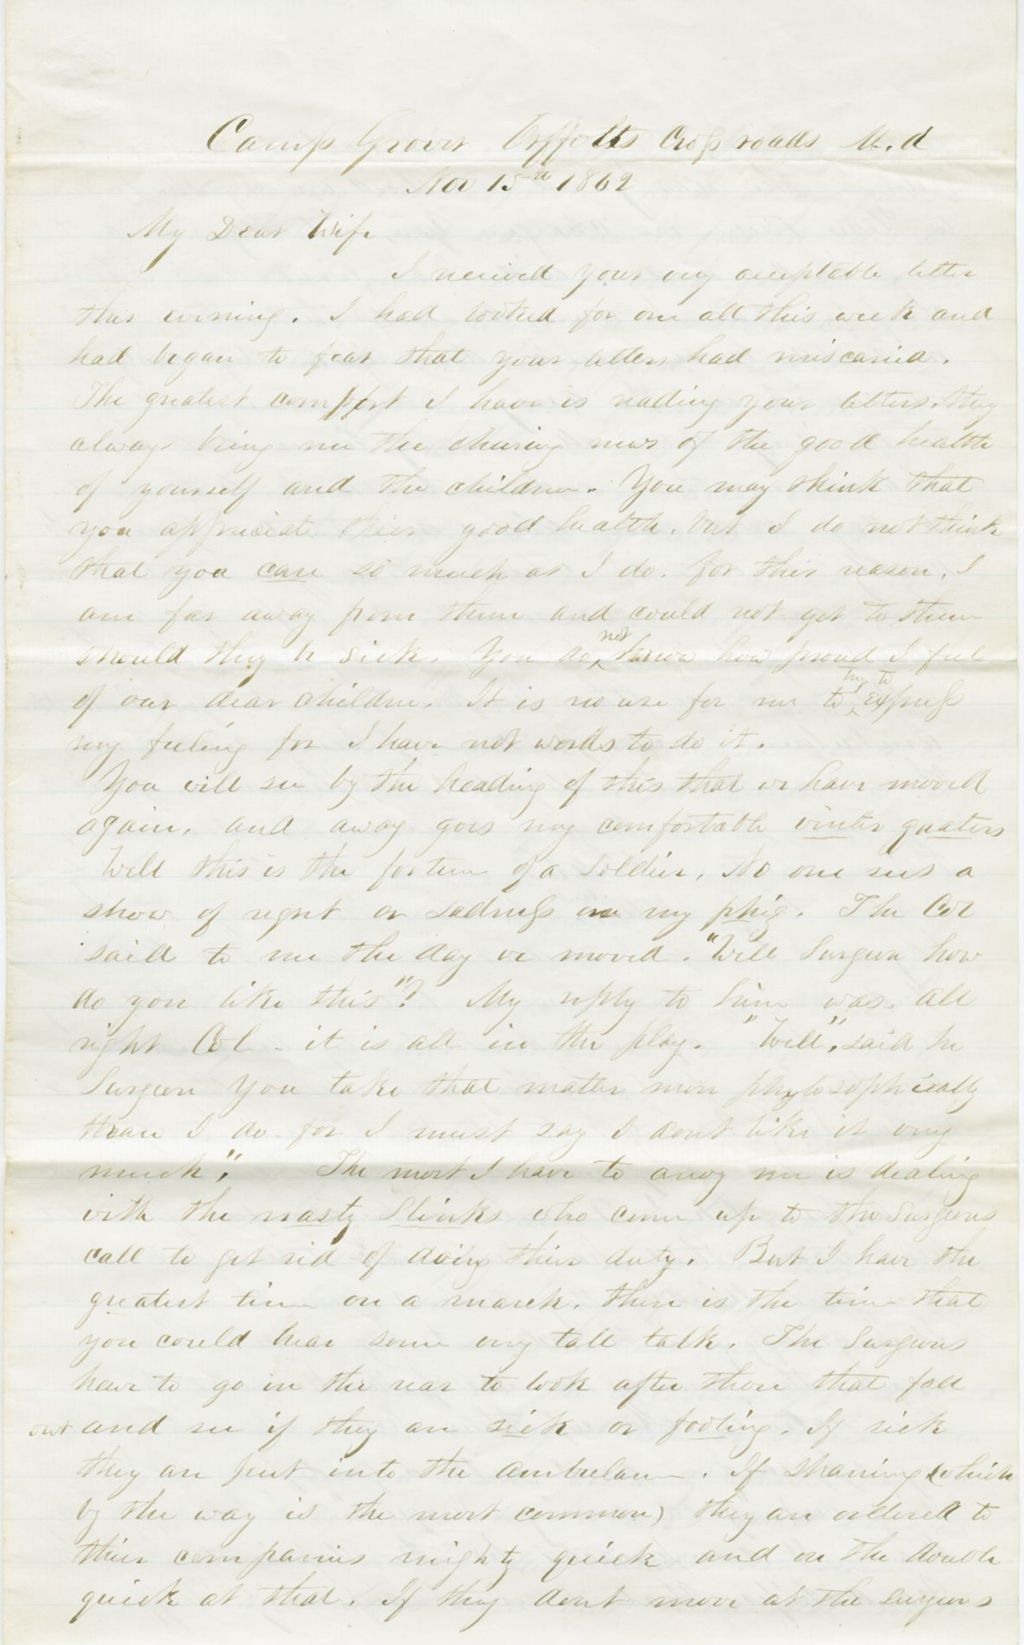 Camp Grover Orffolts Cross roads M.d
Nov 15th 1862
My Dear Wife
I recieved your very acceptable letter
this evening. I had looked for one all this week and
had began to fear that your letters had miscaried.
The greatest comfort I have is reading your letters. they
always bring me the chearing news of the good health
of yourself and the children. You may think that
you appriciate thier good health, but I do not think
that you can so much as I do. for this reason, I
am far away from them and could not get to them
should they be sick. You do not know how proud I feel
of our dear children. It is no use for me to try to express
my feeling for I have not words to do it.
You will see by the heading of this that we have moved
again, and away goes my comfortable winter quaters
Well this is the fortune of a Soldier, No one sees a
show of regret or sadness on my phiz. The Col
said to me the day we moved. "Well Surgeon how
do you like this"? My reply to him was. all
right Col - it is all in the play. "Well", said he
Surgeon you take that matter more phylosophically
than I do for I must say I dont like it very
much". The most I have to anoy me is dealing
with the nasty Slinks who come up to the Surgeons
call to get rid of doing thier duty. But I have the
greatest time on a march. there is the time that
you could hear some very tall talk. The Surgeons
have to go in the rear to look after those that fall
out and see if they are sick or fooling. If sick
they are put into the ambulance. If shaming (which
by the way is the most common) they are ordered to
thier companies mighty quick and on the double
quick at that. If they dont move at the surgeons